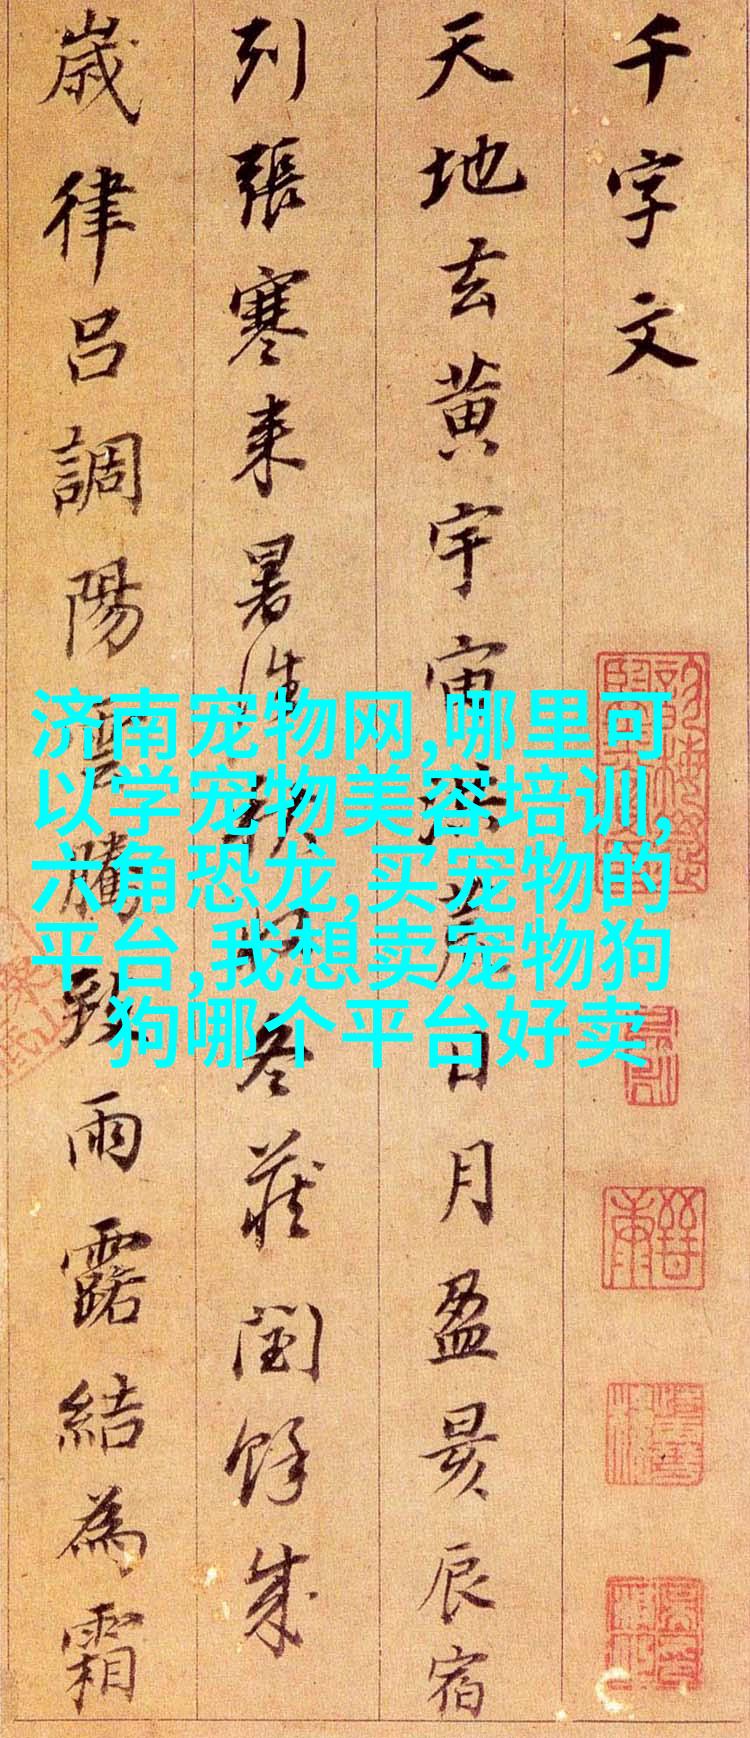 千字文
天地玄黄宇宙洪荒日月盈昃辰宿
列張寒来暑往秋收冬蔵閏餘成
歲律吕調陽雲騰致雨露結為霜
济南宠物网,哪里可
以学宠物美容培训,
六角恐龙,买宠物的
平台,我想卖宠物狗
狗哪个平台好卖